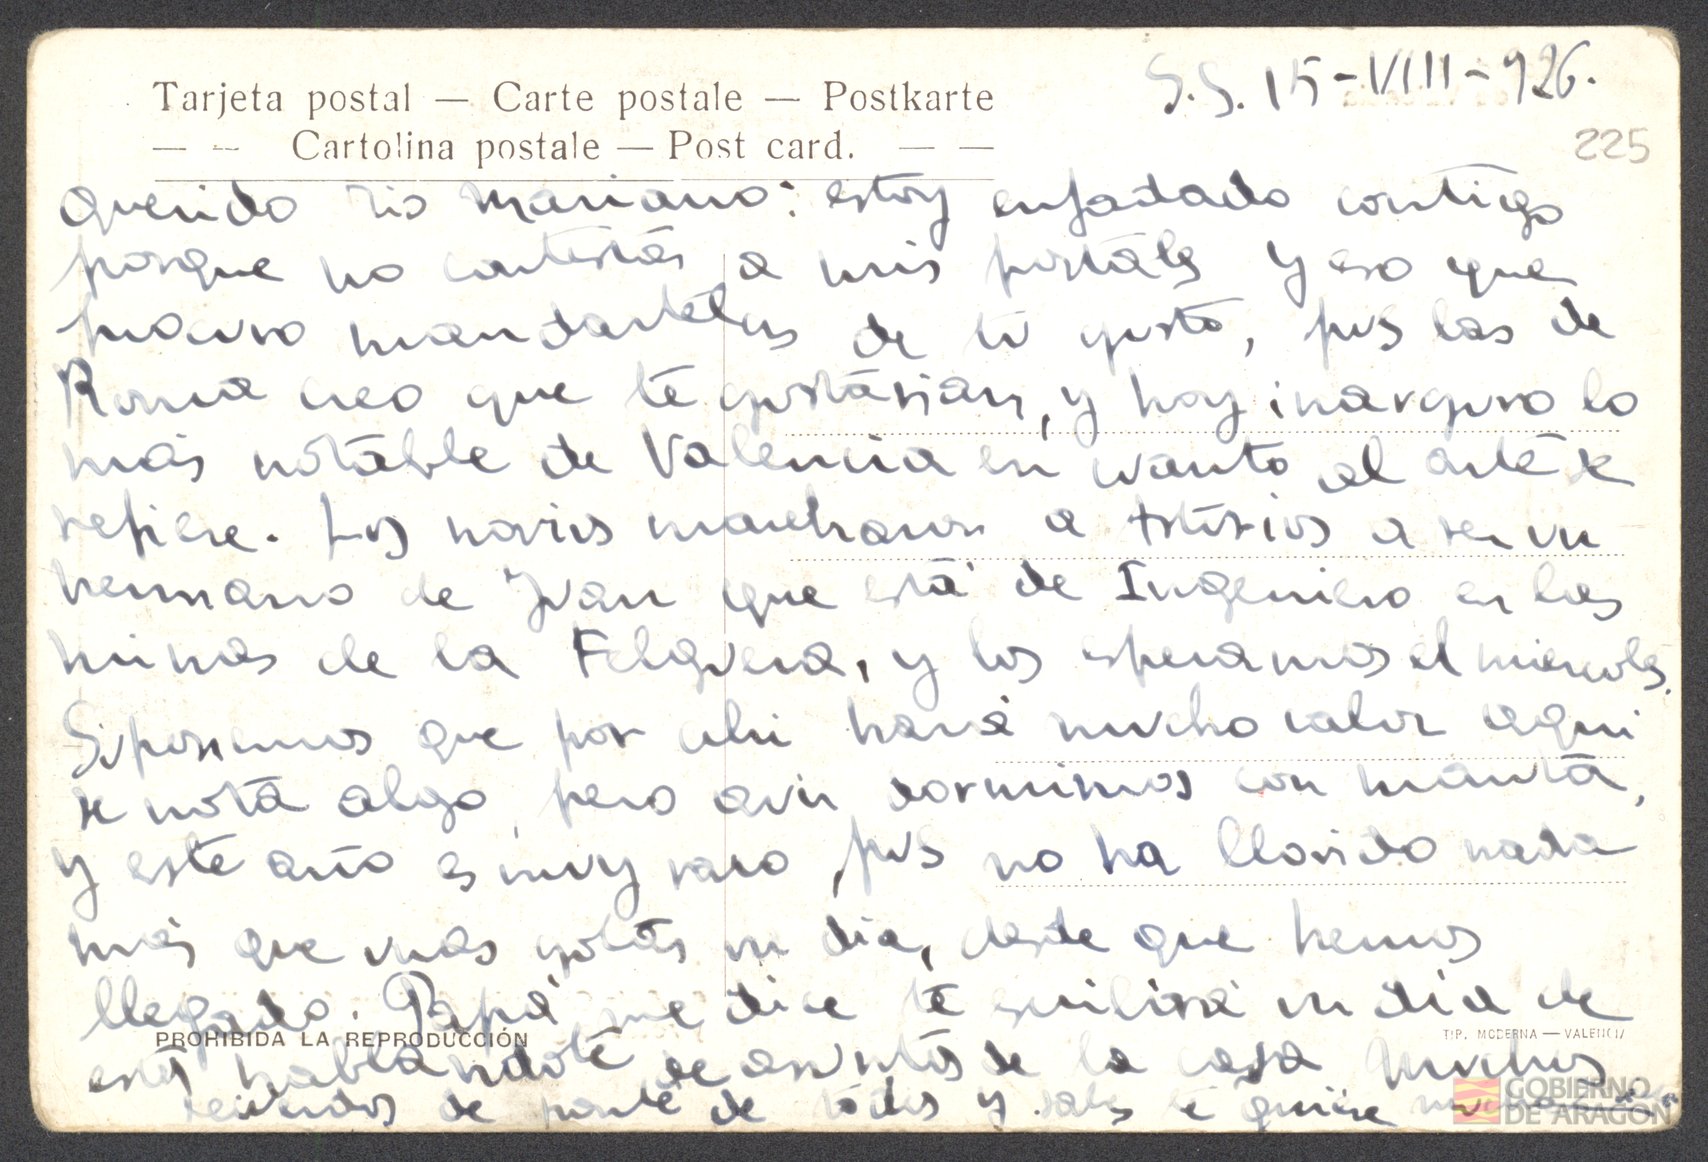 Tarjeta postal — Carte postale — Postkarte
— — Cartolina postale — Post card. — —
S.S. 15-VIII-926.
225
Querido tio Mariano: estoy enfadado contigo
porque no contestás a mis postáles y eso que
procuro mandartélas de tu gusto, pues las de
Roma creo que te gustárian, y hoy inarguro lo
más notáble de Valencia en cuanto al arté se
refiere. Los novios marcharon a Astúrios a ver un
hermano de Juan que está de Ingeniero en las
minas de la Felguera, y los esperamos el miercoles.
Suponemos que por ahi hará mucho calor aqui
se notá algo, pero aun dormimos con mantá,
y este año es muy raro, pues no ha llovido nada
más que unas gotás un dia, desde que hemos
llegado. Papá me dice te escribirá un dia de
estós hablándoté de asuntós de la casa Muchos
recuerdos de parte de todos y sabes te quiere
PROHIBIDA LA REPRODUCCIÓN
TIP. MODERNA — VALENCIA
GOBIERNO
DE ARAGON